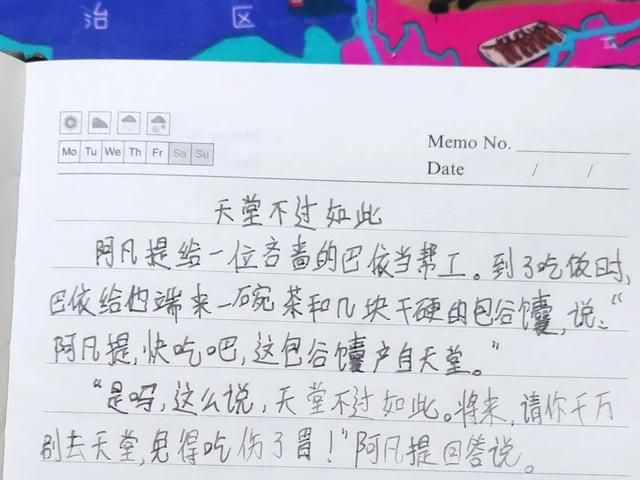 治 区
Memo No.
Mo Tu We Th Fr Sa Su
Date / /
天堂不过如此
阿凡提给一位吝啬的巴依当帮工。到了吃饭时,
巴依给他端来一碗茶和几块干硬的包谷馕,说:“
阿凡提,快吃吧,这包谷馕产自天堂。”
“是吗,这么说,天堂不过如此。将来,请你千万
别去天堂,免得吃伤了胃!”阿凡提回答说。